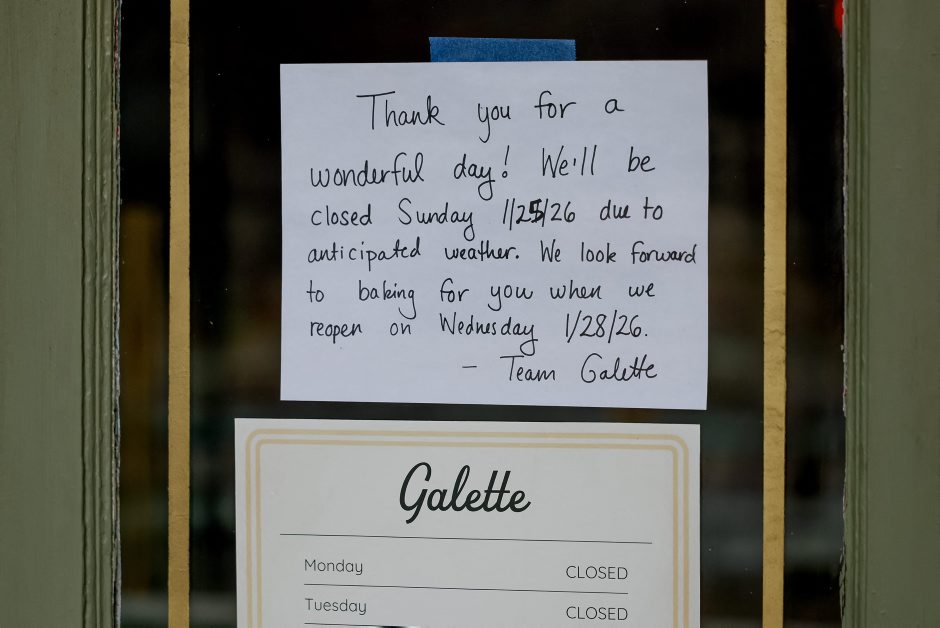 Thank you for a
wonderful day! We'll be
closed Sunday 1/25/26 due to
anticipated weather. We look forward
to baking for you when we
reopen on Wednesday 1/28/26.
- Team Galette
Galette
Monday CLOSED
Tuesday CLOSED